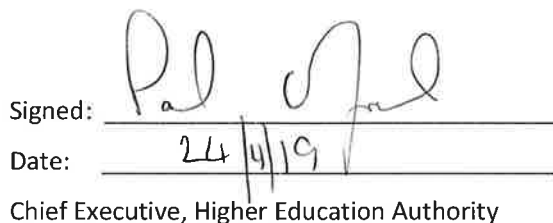 Signed: Paul
Date: 24/4/19
Chief Executive, Higher Education Authority